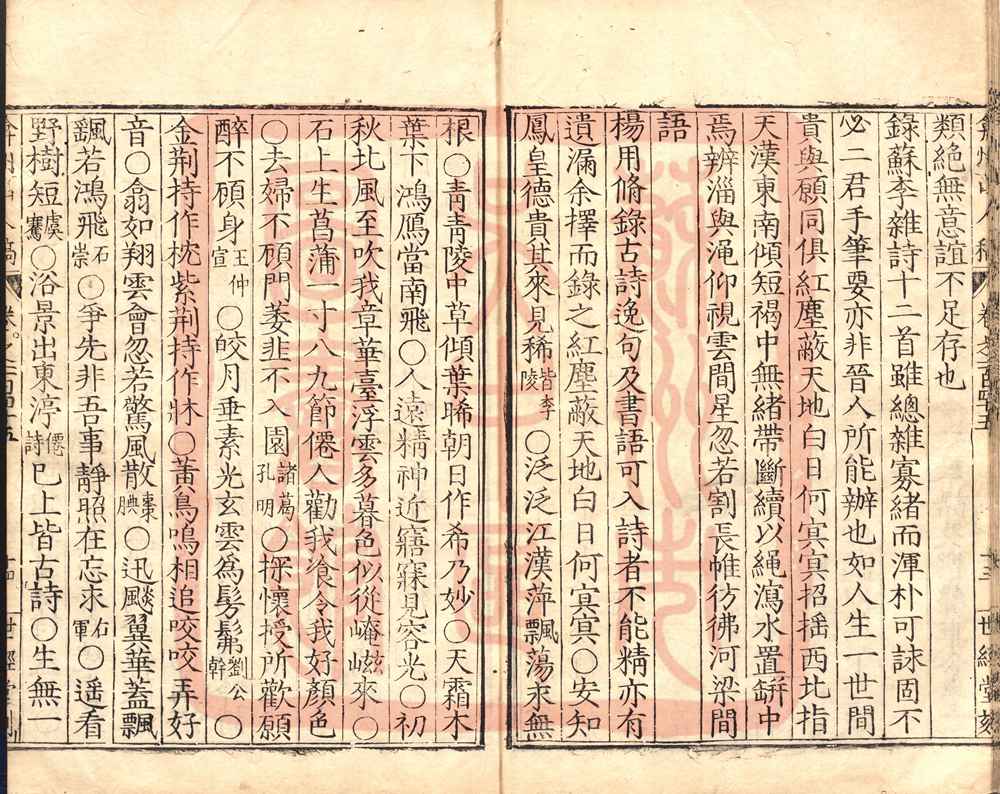 類絶無意誼不足存也
錄蘇李雜詩十二首雖總雜寡緒而渾朴可誦固不
必二君手筆要亦非晉人所能辦也如人生一世間
貴與願同俱紅塵蔽天地白日何冥冥招搖西北指
天漢東南傾短褐中無緒帶斷續以繩瀉水置缾中
焉辨淄與澠仰視雲間星忽若割長帷彷彿河梁間
語
楊用脩錄古詩逸句及書語可入詩者不能精亦有
遺漏余擇而錄之紅塵蔽天地白日何冥冥○安知
鳳皇德貴其來見稀皆李陵○泛泛江漢萍飄蕩永無
根○青青陵中草傾葉晞朝日作希乃妙○天霜木
葉下鴻鴈當南飛○人遠精神近寤寐見容光○初
秋北風至吹我章華臺浮雲多暮色似從崦嵫來○
石上生菖蒲一寸八九節僊人勸我飡令我好顏色
○去婦不顧門萎韭不入園諸葛孔明○採懷授所歡願
醉不顧身王仲宣○皎月垂素光玄雲爲髣髴劉公幹○
金荆持作枕紫荆持作牀○黃鳥鳴相追咬咬弄好
音○翕如翔雲會忽若驚風散棗腆○迅飈翼華蓋飄
飄若鴻飛石崇○爭先非吾事靜照在忘求右軍○遥看
野樹短虞騫○浴景出東渟僊詩巳上皆古詩○生無一
世經堂刻